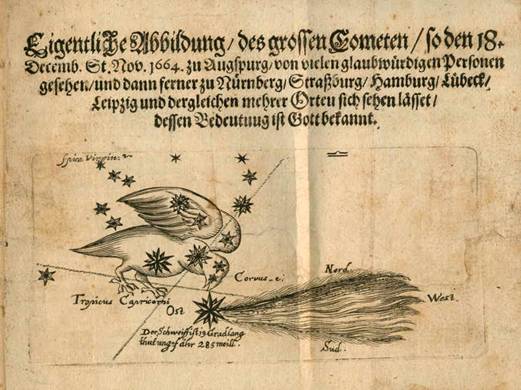 Eigentliche Abbildung / des grossen Cometen / so den 18.
Decemb. St. Nov. 1664. zu Augspurg / von vielen glaubwürdigen Personen
gesehen / und dann ferner zu Nürnberg / Straßburg / Hamburg / Lübeck /
Leipzig und dergleichen mehrer Orten sich sehen lässet /
dessen Bedeutung ist Gott bekannt.
Spica Virgin:
Nord.
Corvus
Tropicus Capricorni
Ost
West.
Der Schweiff ist 19 Grad lang
285 meill.
Sud.